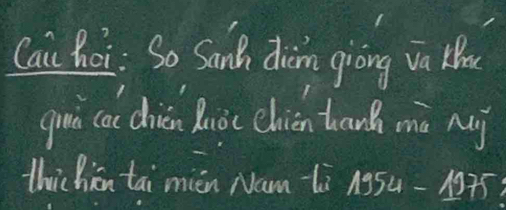 Câu hỏi: So sánh điểm giống và khác
giữa các chiến lược chiến tranh mà Mỹ
thực hiện tại miền Nam từ 1954 - 1975?